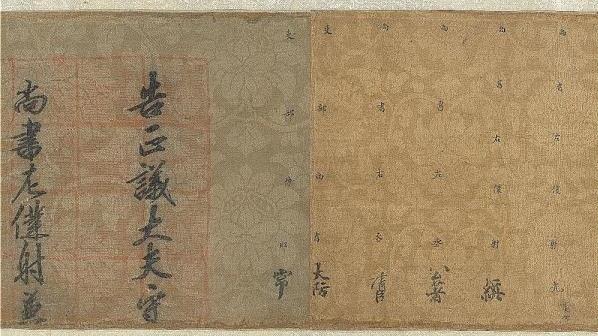 尚書左僕射光
尚書右僕射
尚書左丞
尚書右丞
吏部尚書大防
吏部侍郎
告正議大夫守
尚書左僕射兼